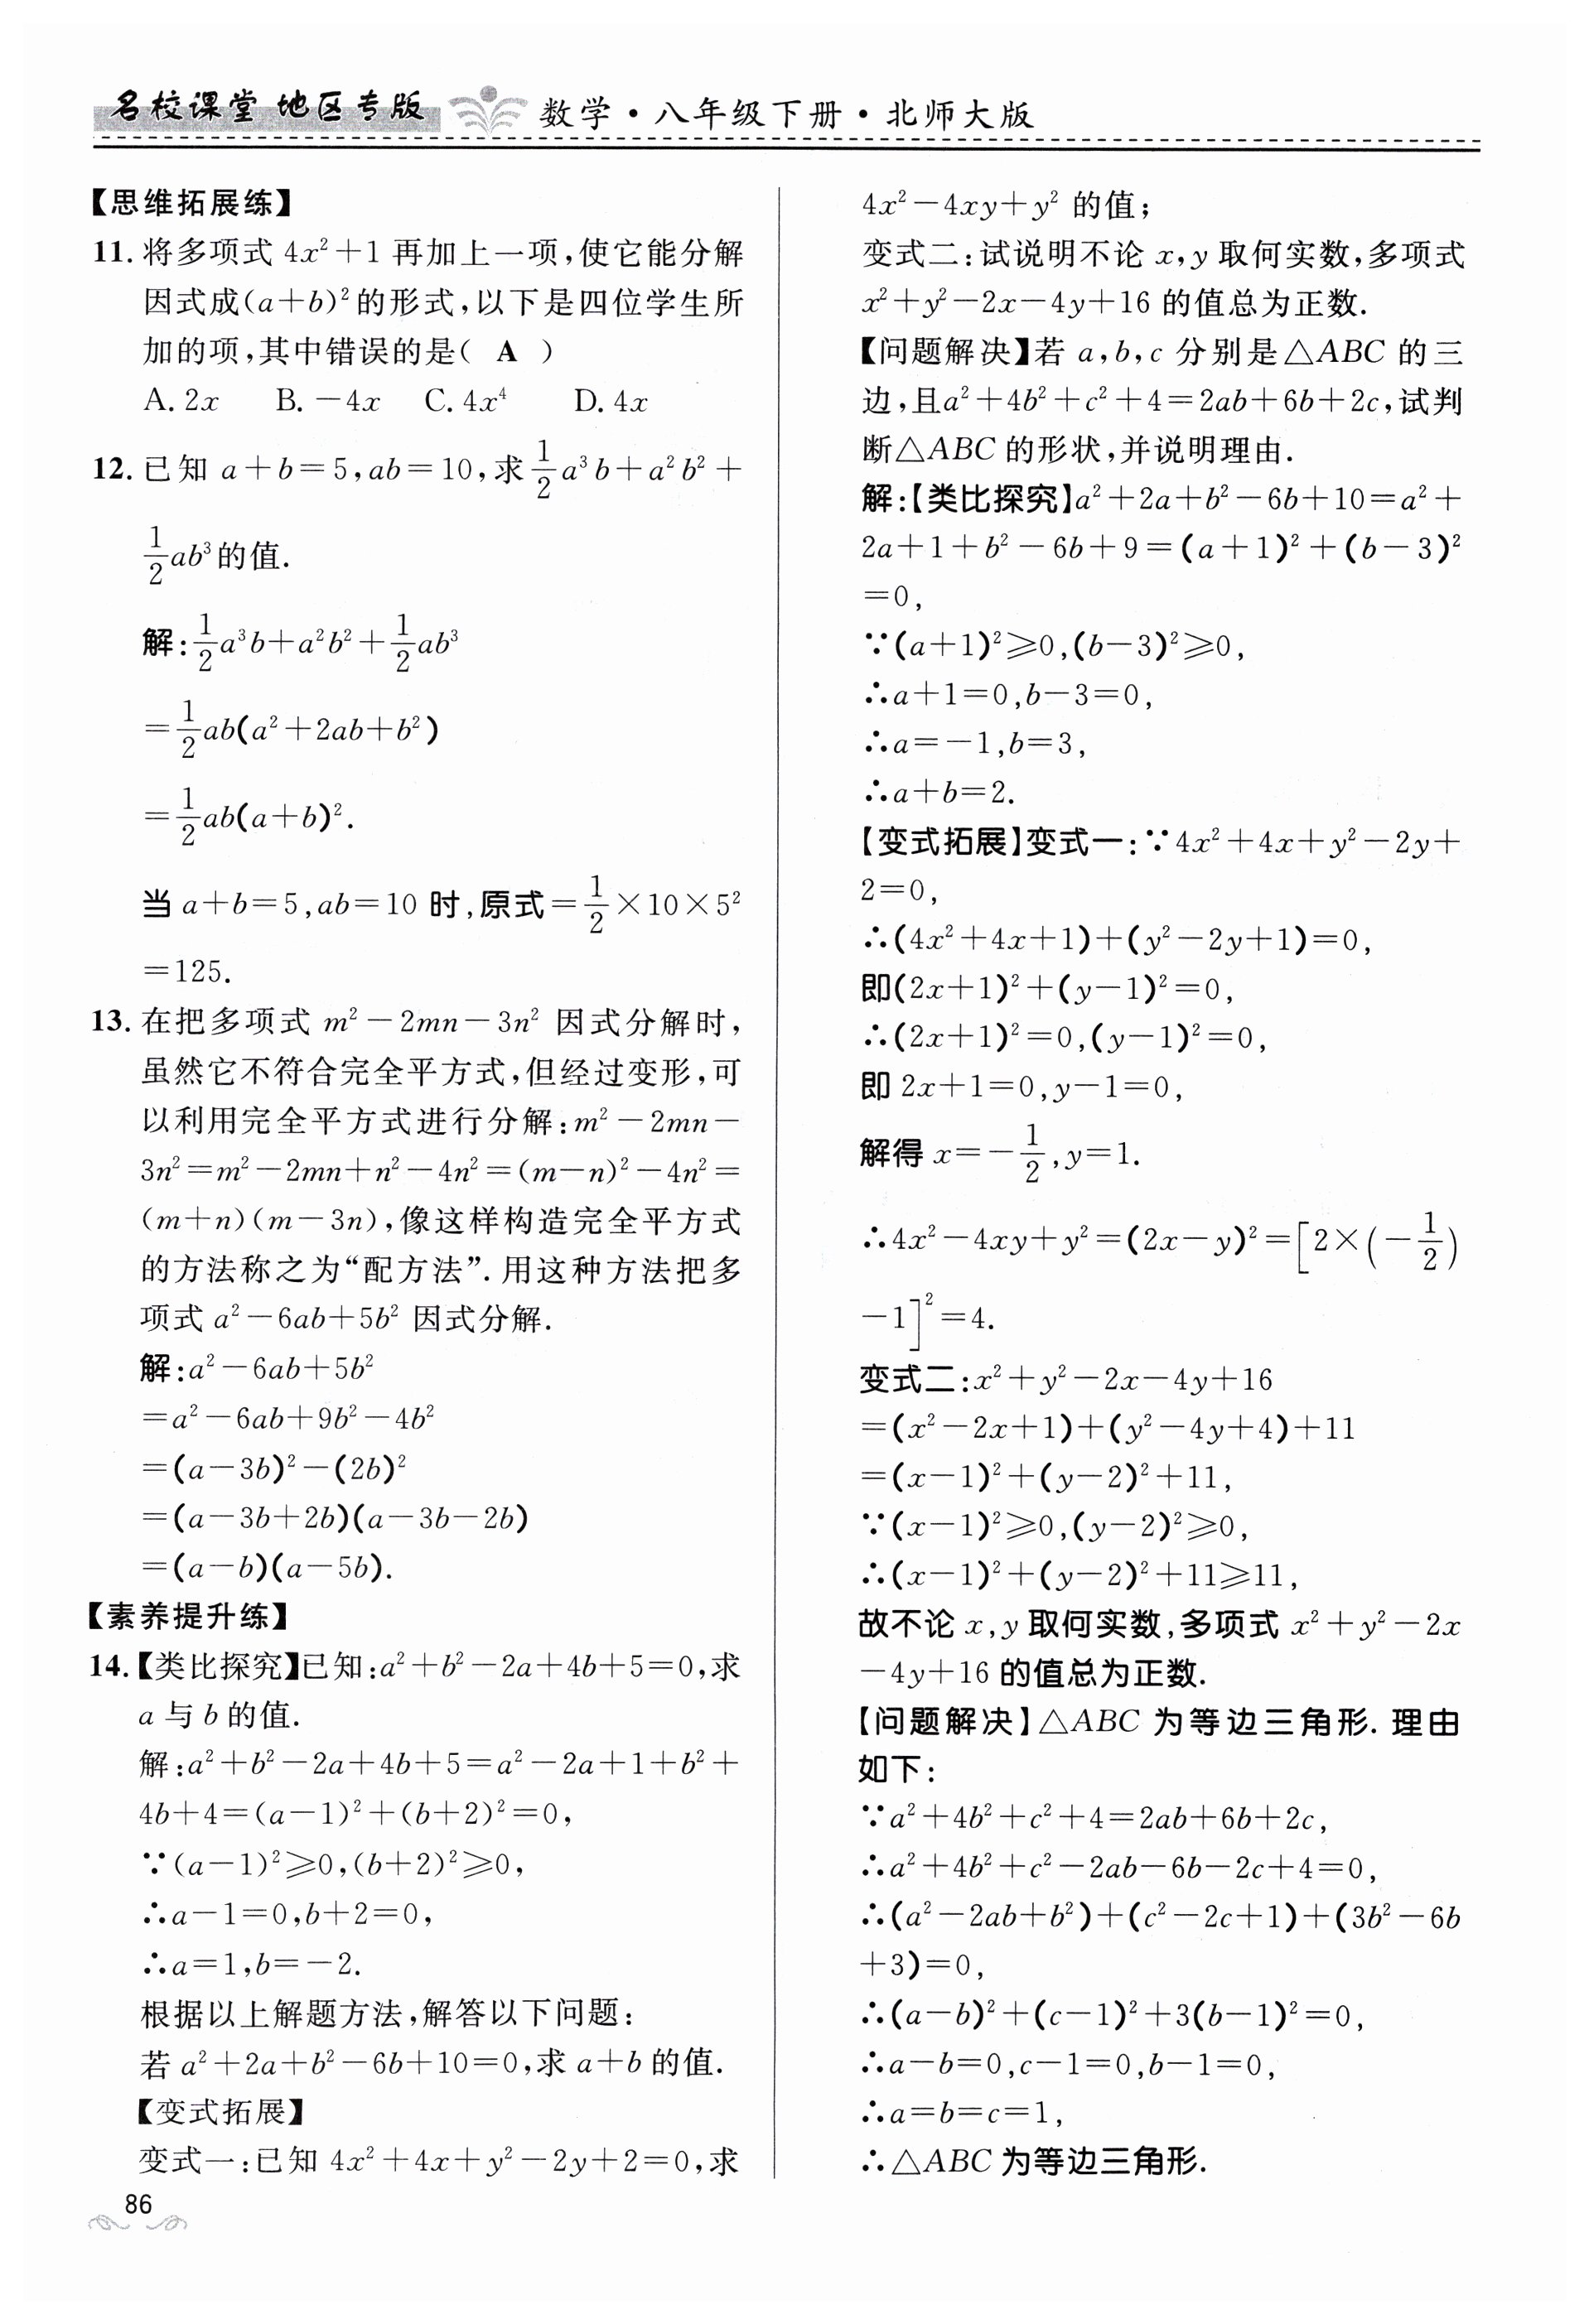 名校课堂 地区专版 数学·八年级下册·北师大版
【思维拓展练】
11. 将多项式 4x²+1 再加上一项,使它能分解
因式成(a+b)²的形式,以下是四位学生所
加的项,其中错误的是( A )
A. 2x B. －4x C. 4x⁴ D. 4x
12. 已知 a+b=5,ab=10,求 1/2 a³b+a²b²+
1/2 ab³的值.
解:1/2 a³b+a²b²+1/2 ab³
=1/2 ab(a²+2ab+b²)
=1/2 ab(a+b)².
当 a+b=5,ab=10 时,原式=1/2×10×5²
=125.
13. 在把多项式 m²－2mn－3n² 因式分解时,
虽然它不符合完全平方式,但经过变形,可
以利用完全平方式进行分解:m²－2mn－
3n²=m²－2mn+n²－4n²=(m－n)²－4n²=
(m+n)(m－3n),像这样构造完全平方式
的方法称之为“配方法”. 用这种方法把多
项式 a²－6ab+5b² 因式分解.
解:a²－6ab+5b²
=a²－6ab+9b²－4b²
=(a－3b)²－(2b)²
=(a－3b+2b)(a－3b－2b)
=(a－b)(a－5b).
【素养提升练】
14.【类比探究】已知:a²+b²－2a+4b+5=0,求
a 与 b 的值.
解:a²+b²－2a+4b+5=a²－2a+1+b²+
4b+4=(a－1)²+(b+2)²=0,
∵(a－1)²⩾0,(b+2)²⩾0,
∴a－1=0,b+2=0,
∴a=1,b=－2.
根据以上解题方法,解答以下问题:
若 a²+2a+b²－6b+10=0,求 a+b 的值.
【变式拓展】
变式一:已知 4x²+4x+y²－2y+2=0,求
86
4x²－4xy+y² 的值;
变式二:试说明不论 x,y 取何实数,多项式
x²+y²－2x－4y+16 的值总为正数.
【问题解决】若 a,b,c 分别是△ABC 的三
边,且a²+4b²+c²+4=2ab+6b+2c,试判
断△ABC 的形状,并说明理由.
解:【类比探究】a²+2a+b²－6b+10=a²+
2a+1+b²－6b+9=(a+1)²+(b－3)²
=0,
∵(a+1)²⩾0,(b－3)²⩾0,
∴a+1=0,b－3=0,
∴a=－1,b=3,
∴a+b=2.
【变式拓展】变式一:∵4x²+4x+y²－2y+
2=0,
∴(4x²+4x+1)+(y²－2y+1)=0,
即(2x+1)²+(y－1)²=0,
∴(2x+1)²=0,(y－1)²=0,
即 2x+1=0,y－1=0,
解得 x=－1/2,y=1.
∴4x²－4xy+y²=(2x－y)²=[2×(－1/2)
－1]²=4.
变式二:x²+y²－2x－4y+16
=(x²－2x+1)+(y²－4y+4)+11
=(x－1)²+(y－2)²+11,
∵(x－1)²⩾0,(y－2)²⩾0,
∴(x－1)²+(y－2)²+11⩾11,
故不论 x,y 取何实数,多项式 x²+y²－2x
－4y+16 的值总为正数.
【问题解决】△ABC 为等边三角形. 理由
如下:
∵a²+4b²+c²+4=2ab+6b+2c,
∴a²+4b²+c²－2ab－6b－2c+4=0,
∴(a²－2ab+b²)+(c²－2c+1)+(3b²－6b
+3)=0,
∴(a－b)²+(c－1)²+3(b－1)²=0,
∴a－b=0,c－1=0,b－1=0,
∴a=b=c=1,
∴△ABC 为等边三角形.